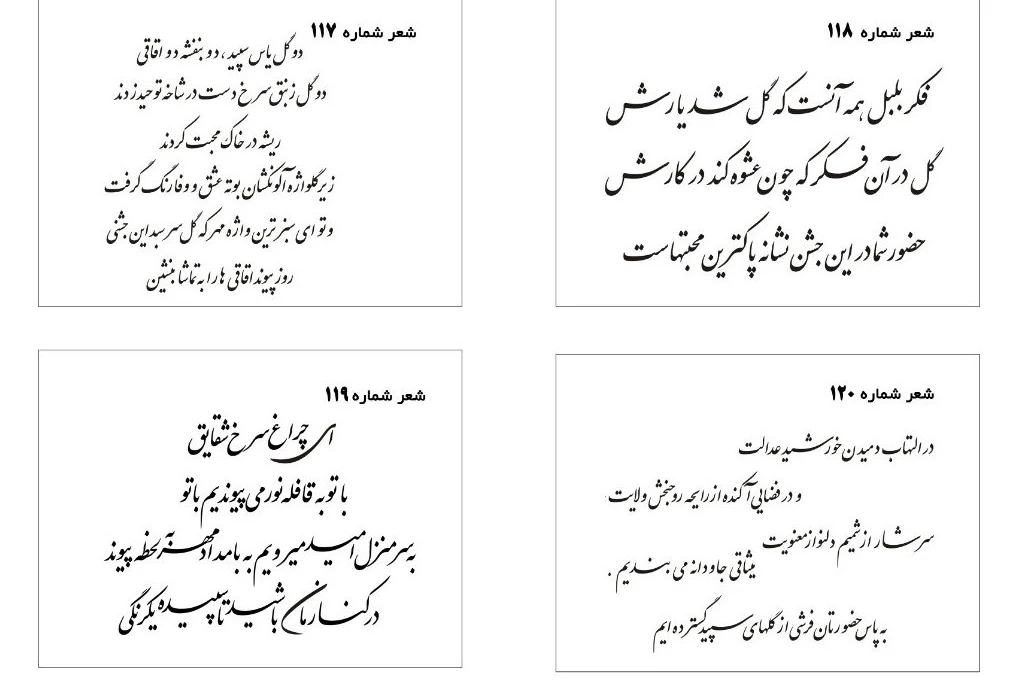 شعر شماره ۱۱۸
فکر بلبل همه آنست که گل شد یارش
گل در آن فکر که چون عشوه کند در کارش
حضور شما در این جشن نشانه پاکترین محبتهاست
شعر شماره ۱۱۷
دو گل یاس سپید ، دو بنفشه دو اقاقی
دو گل زنبق سرخ دست در شاخه توحید زدند
ریشه در خاک محبت کردند
زیر گلواژه آلونکشان بوته عشق و وفا رنگ گرفت
و تو ای سبزترین واژه مهر که گل سرسبد این جشنی
روز پیوند اقاقی ها را به تماشا بنشین
شعر شماره ۱۲۰
در التهاب دمیدن خورشید عدالت
و در فضایی آکنده از رایحه روحبخش ولایت
سرشار از شمیم دلنواز معنویت
میثاقی جاودانه می بندیم .
به پاس حضورتان فرشی از گلهای سپید گسترده ایم
شعر شماره ۱۱۹
ای چراغ سرخ شقایق
با تو به قافله نور می پیوندیم با تو
به سرمنزل امید میرویم به بامداد مهر به لحظه پیوند
در کنارمان باشید تا سپیده یکرنگی